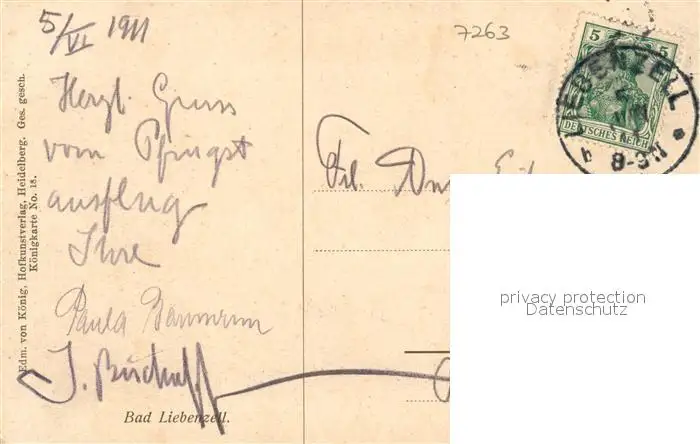 5/VI 1911
7263
Herzl. Gruss
vom Pfingst
ausflug
Ihre
Paula
J.
Frl.
5 5
DEUTSCHES REICH
LIEBENZELL
8-9 N
privacy protection
Datenschutz
Bad Liebenzell.
Edm. von König, Hofkunstverlag, Heidelberg. Ges. gesch.
Königkarte No. 18.